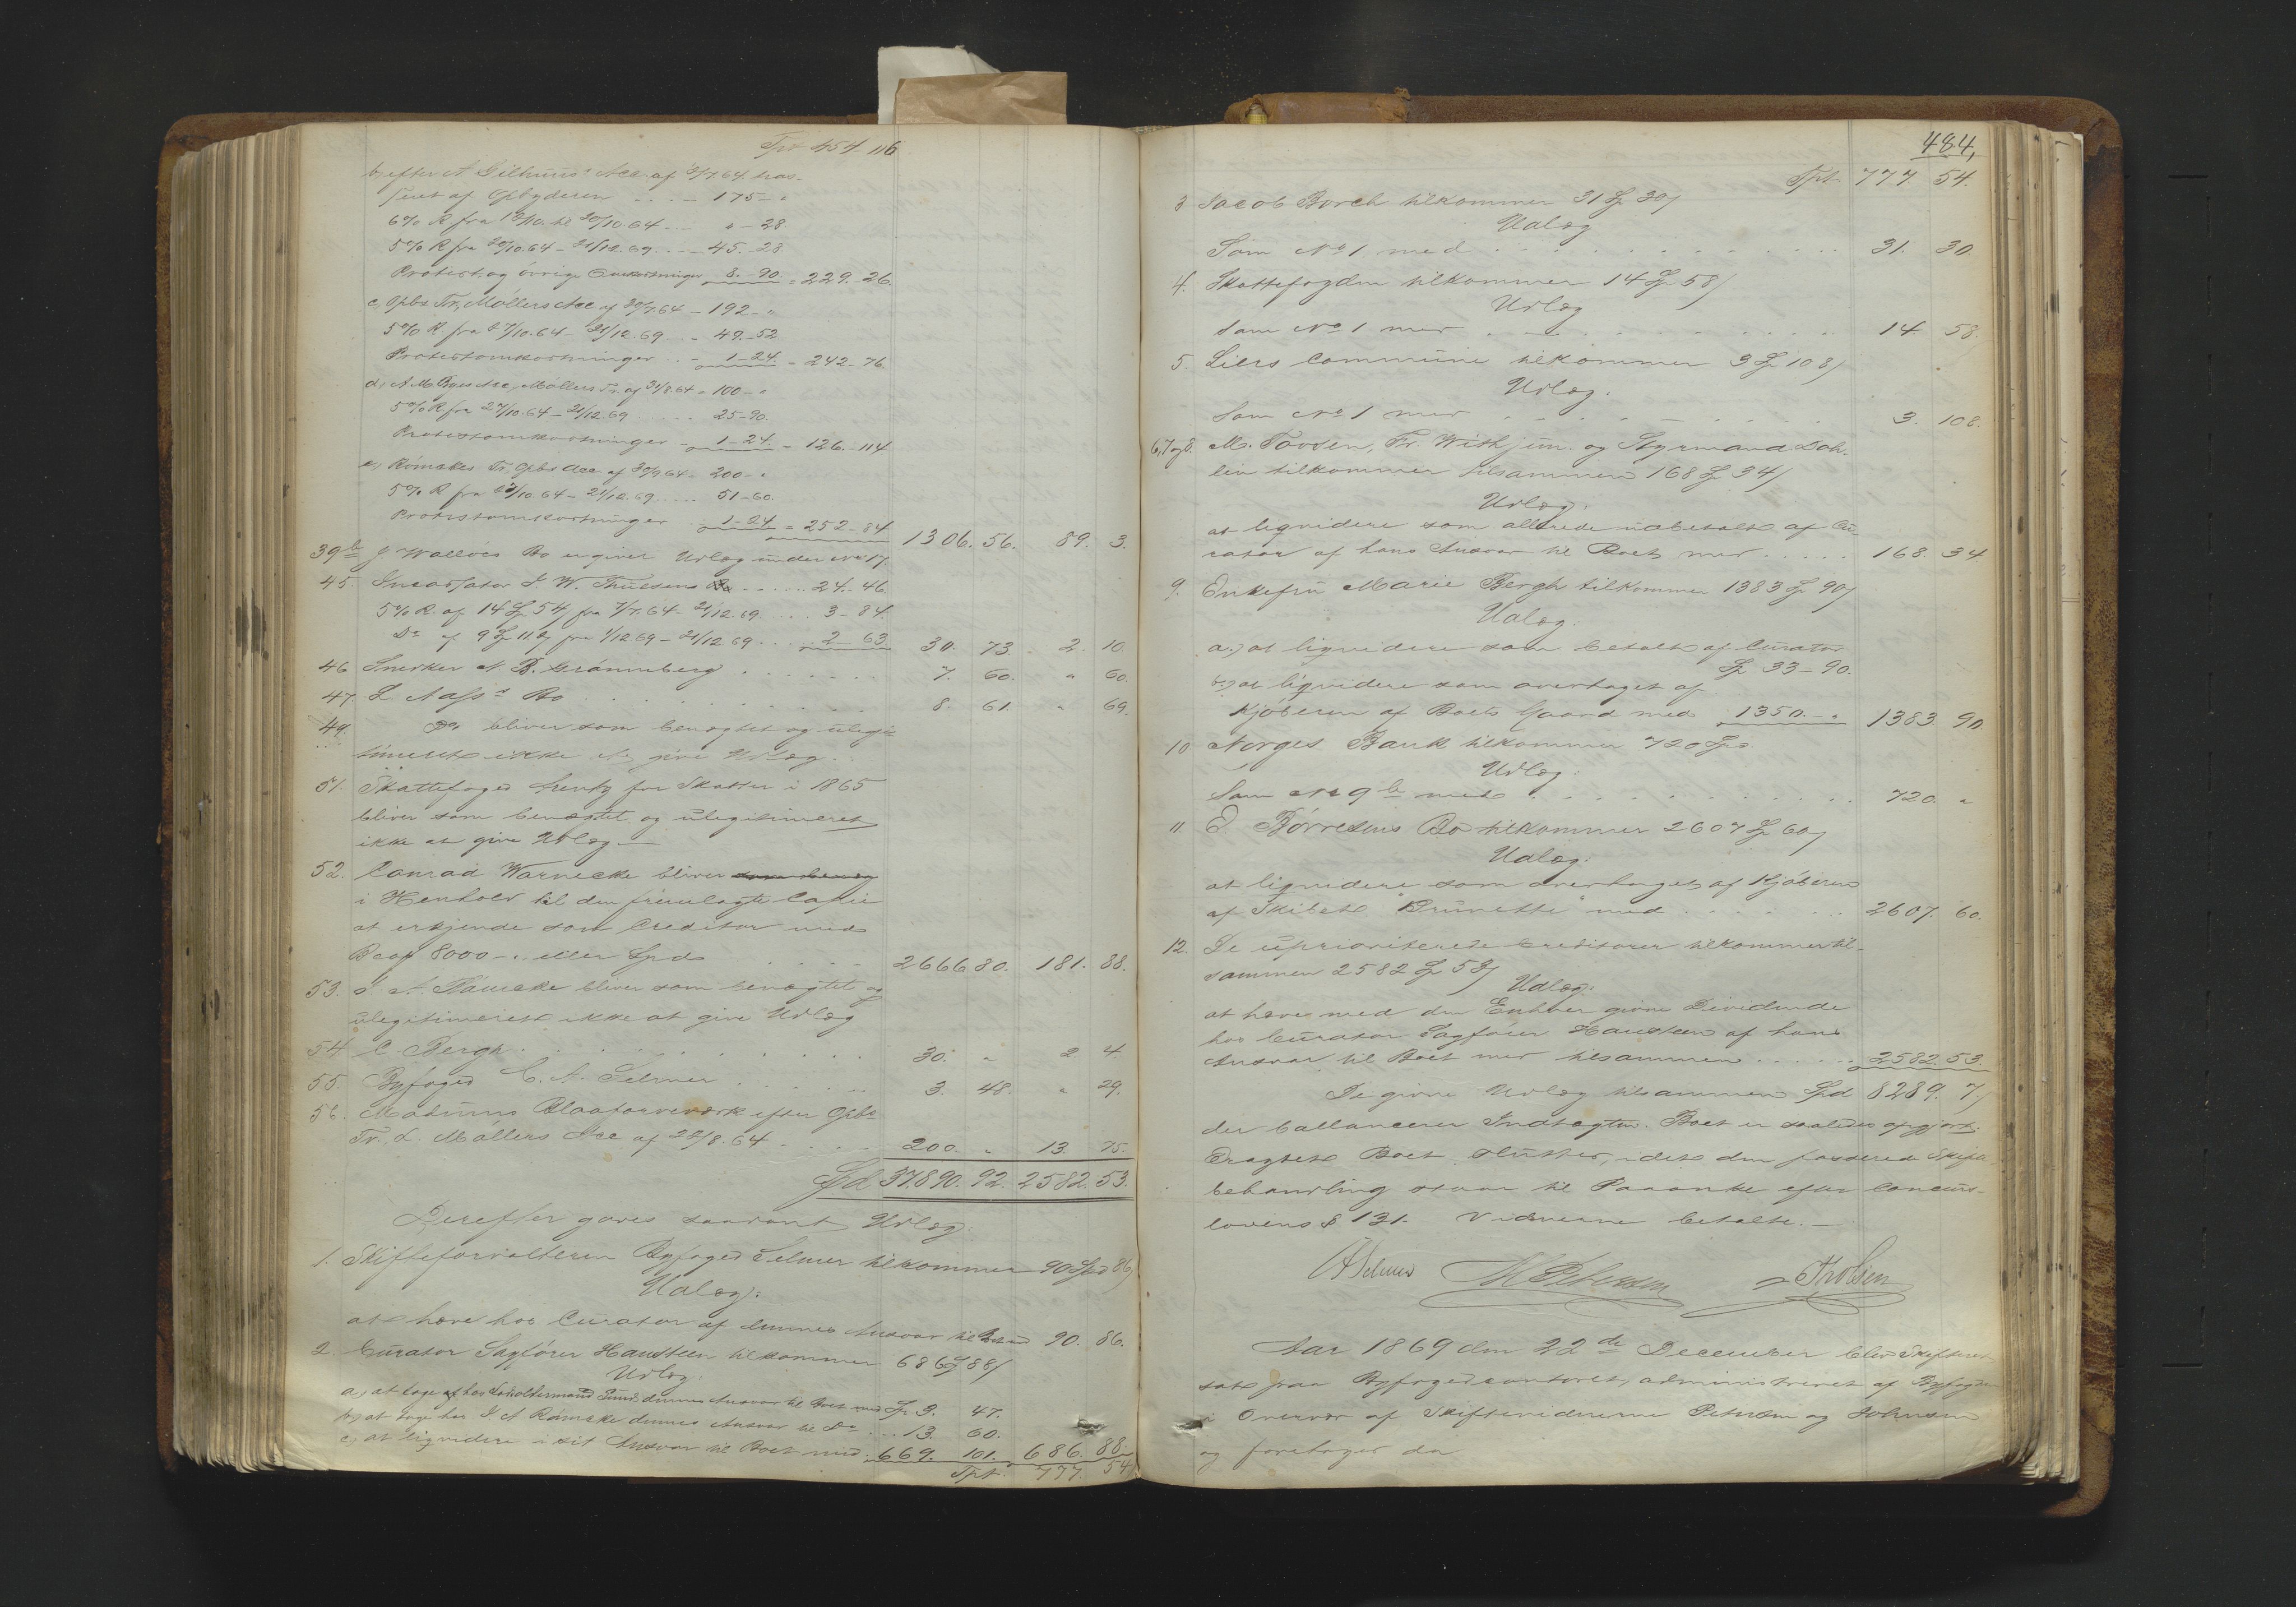 Tpt 454 116
b, efter A Gilhuus's Acc. af 2/7.64. tras-
seret af Opbyderen . . . . 175 - "
6% R fra 12/10. til 20/10.64 . . " - 28
5% R fra 20/10.64 - 21/12.69 . . 45. 28
Protest og övrige Omkostninger 8. - 90. = 229. - 26.
c, Opbs Tr. Möllers Acc af 30/7.64 - 192 - "
5% R fra 27/10.64 - 21/12.69 - 49. - 52
Protestomkostninger . . - 1 - 24. = 242 - 76
d, A. M. Acc, Möllers Tr. af 31/8.64 - 100 - "
5% R. fra 27/10.64 - 21/12.69 . . . . 25 - 90.
Protestomkostninger - 1 - 24. = 126. - 114
e, Römckes Tr, Opbs Acc af 30/9.64 - 200 - "
5% R fra 27/10.64 - 21/12.69 . . . . 51 - 60.
Protestomkostninger . 1 - 24 = 252 - 84 1306. 56. 89. 3.
39b J Wallöes Bo er given Udlæg under No 17
45. Incassator J. W. Thuesens Bo . . . . . 24. - 46
5% R af 14 Sp 54 fra 1/7.64 - 21/12.69. . . . . 3 - 84.
Do af 9 Sp 112 fra 1/12.69 - 21/12 69 . . . . 2 - 63 30. 73. 2. 10
46 Snedker N. B. Grönneberg . . . . . . . 7. 60. " 60.
47. L Aass's Bo . . . . . . . 8. 61. " 69.
49. Do bliver som benegtet og ulegi-
timeret ikke at give Udlæg.
51. Skattefoged Arentz for Skatter i 1865
bliver som benegtet og ulegitimeret
ikke at give Udlæg
52. Conrad Warnecke bliver som beneg
i Henhold til den fremlagte Copie
at erkjende som Creditor med
Bco 8000 - . eller Spd . . . . 2666 80. 181. 88.
53. J. A. bliver som benægtet og
ulegitimeret ikke at give Udlæg
54 C. Bergh . . . . . . . . 30. " 2 4
55. Byfoged C. A. Selmer . . . . . 3. 48. " 29.
56. Modums Blaafarveværk efter Opbs
Tr. L. Möllers Acc af 22/8.64 . . . 200. " 13. 75.
Spd 37.890. 92. 2582. 53.
Derefter gaves saadant Udlæg:
1. Skifteforvalteren Byfoged Selmer tilkommer 90 Spd 86
Udlæg:
at hæve hos Curator af dennes Ansvar til Boet med 90. 86.
2. Curator Sagförer Hansteen tilkommer 686 Sp 88
Udlæg:
a, at tage hos dennes Ansvar til Boet med Sp 3. 47.
b, at tage hos J A Römcke dennes Ansvar til Do . . . 13. 60.
c, at liqvidere i sit Ansvar til Boet med 669. 101. 686. 88.
Tpt 777. 54
484,
Tpt. 777 54.
3 Jacob Borch tilkommer 31 Sp 30
Udlæg
Som No 1 med . . . . . . . . . 31. 30
4. Skattefogden tilkommer 14 Sp 58
Udlæg
Som No 1 med . . . . . . . . . 14. 58.
5. Liers Commune tilkommer 3 Sp 108
Udlæg.
Som No 1 med . . . . . . . . . 3. 108.
6, 7 og 8. M. Tovsen, Fr. Wisth jun. og Styrmand Doh-
len tilkommer tilsammen 168 Sp 34
Udlæg.
at liqvidere som allerede udbetalt af Cu-
rator af hans Ansvar til Boet med . . . . . 168. 34.
9. Enkefru Marie Bergh tilkommer 1383 Sp 90
Udlæg.
a.) at liqvidere som betalt af Curator
Sp 33 - 90.
b.) at liqvidere som overtaget af
Kjöberen af Boets Gaard med 1350. - " 1383. 90.
10 Norges Bank tilkommer 720 Spd
Udlæg:
Som No 9 b med . . . . . . . . . 720. "
11 E Börresens Bo tilkommer 2607 Sp 60
Udlæg:
at liqvidere som overtaget af Kjöberen
af Skibet "Brunette" med . . . . . . 2607. 60.
12. De uprioriterede Creditorer tilkommer til-
sammen 2582 Sp 53
Udlæg:
at hæve med den Enhver givne Dividende
hos Curator Sagförer Hansteen af hans
Ansvar til Boet med tilsammen . . . . . . 2582. 53.
De givne Udlæg tilsammen Spd 8289. 7
der ballancerer Indtægten. Boet er saaledes opgjort.
Eragtet Boet sluttet, idet den passerede Skifte-
behandling staar til Paaanke efter Concurs-
lovens § 131. Vidnerne betalte. -
A Selmer M Petersen Johnsen
Aar 1869 den 22de December blev Skifteret
sat paa Byfogedcontoret, administreret af Byfogden
i Overvær af Skiftevidnerne Petersen og Johnsen
og foretoges da